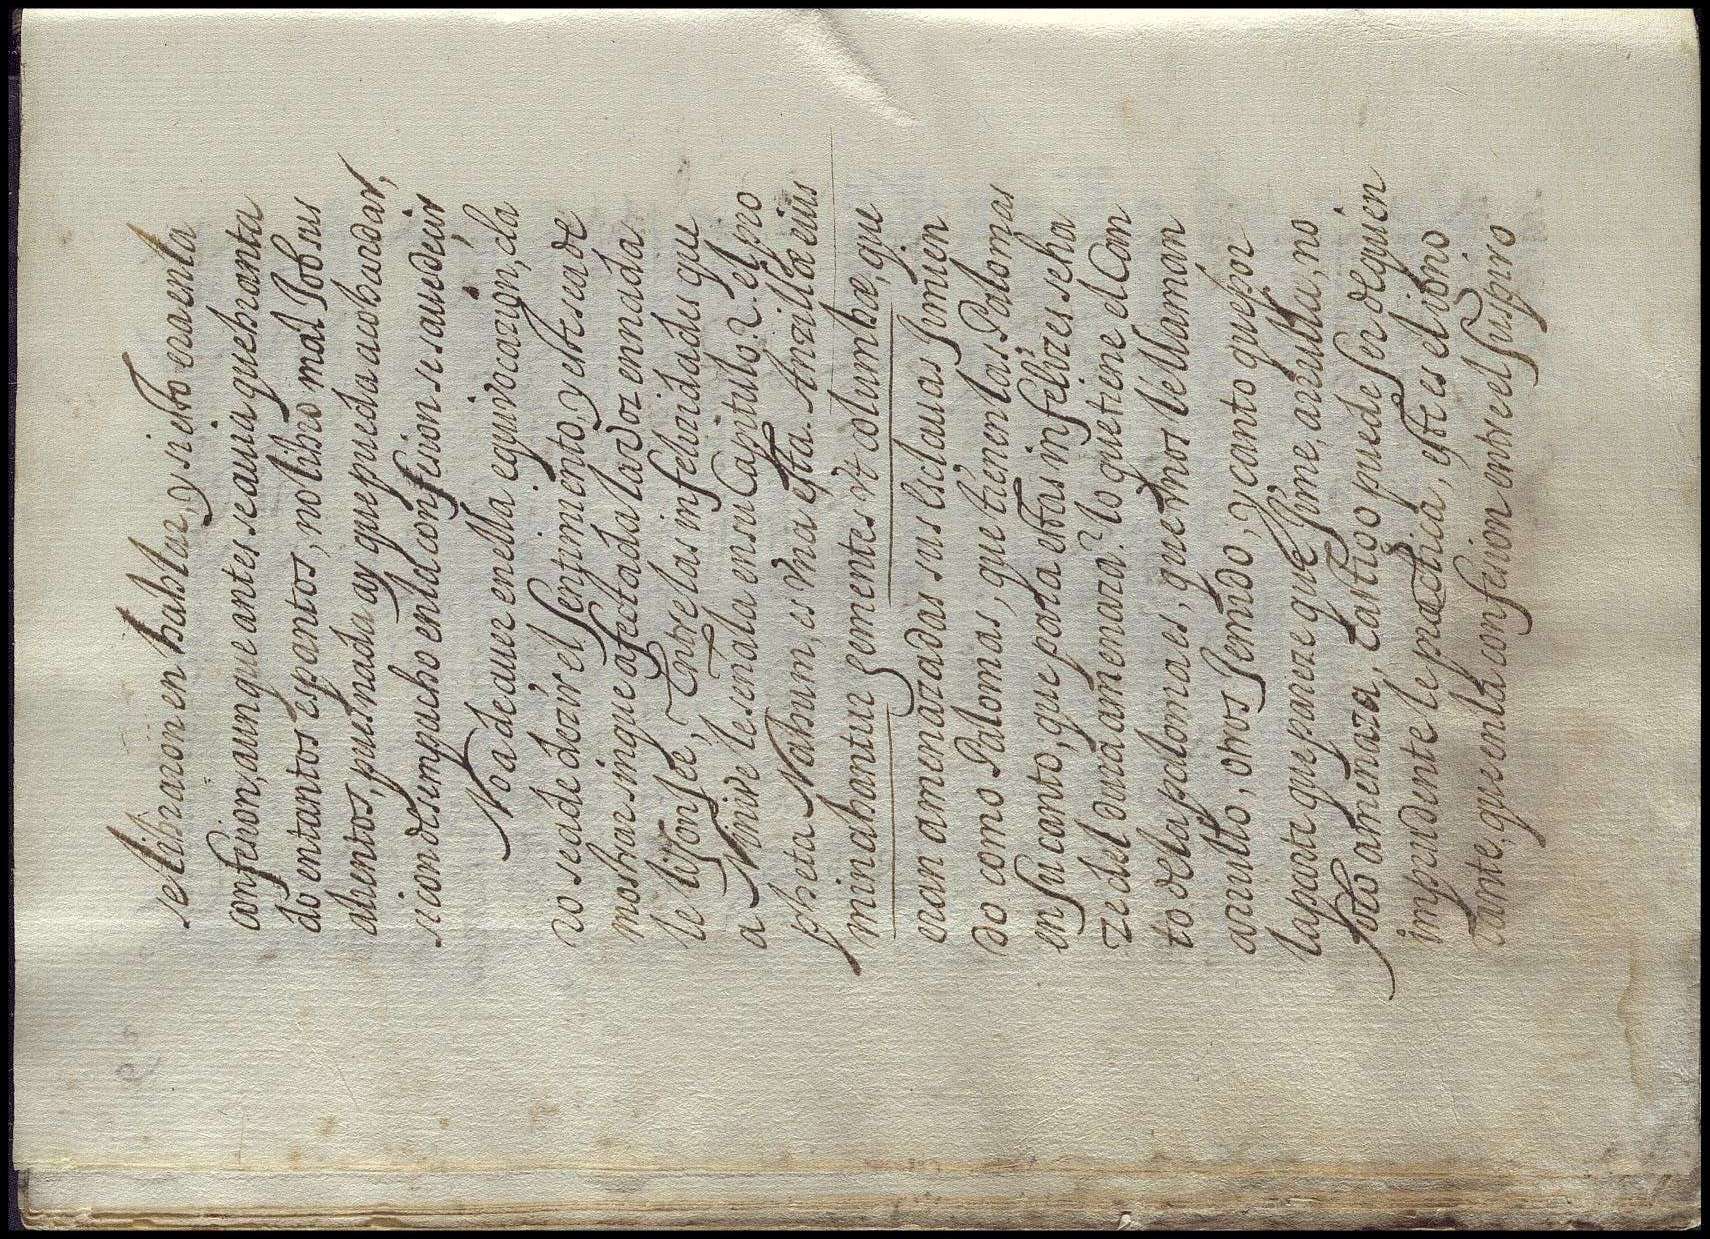 se libraron en hablar, y si esto era en la
confesion, aunque antes se auia quebranta
do en tantos espantos, no libro mal Job sus
alientos, pues nada ay que pueda acobardar,
si con desempacho en la confesion se saue decir
No ade auer en ella equivocazion, cla
ro se a de dezir el sentimiento, y este se a de
mostrar sin que afectada la voz en nada
le lisonsee, Entre las infelizidades que
a Ninive le señala en su Capitulo 2. el pro
pheta Nahum, es vna esta. Anzillæ eius
minabantur gementes vt columbæ, que
eran amenazadas sus esclauas Jimien
do como Palomas, que tienen las Palomas
en su canto, que para estas infelizes se ha
ze del dura amenaza? lo que tiene el Can
to de la paloma es, que vnos le llaman
arrullo, otros Jemido, y canto que por
la parte que pareze que Jime, arrulla, no
solo amenaza, Castigo puede ser de quien
imprudente le practica, este es el ipno
cante, que en la confesion entre el suspiro